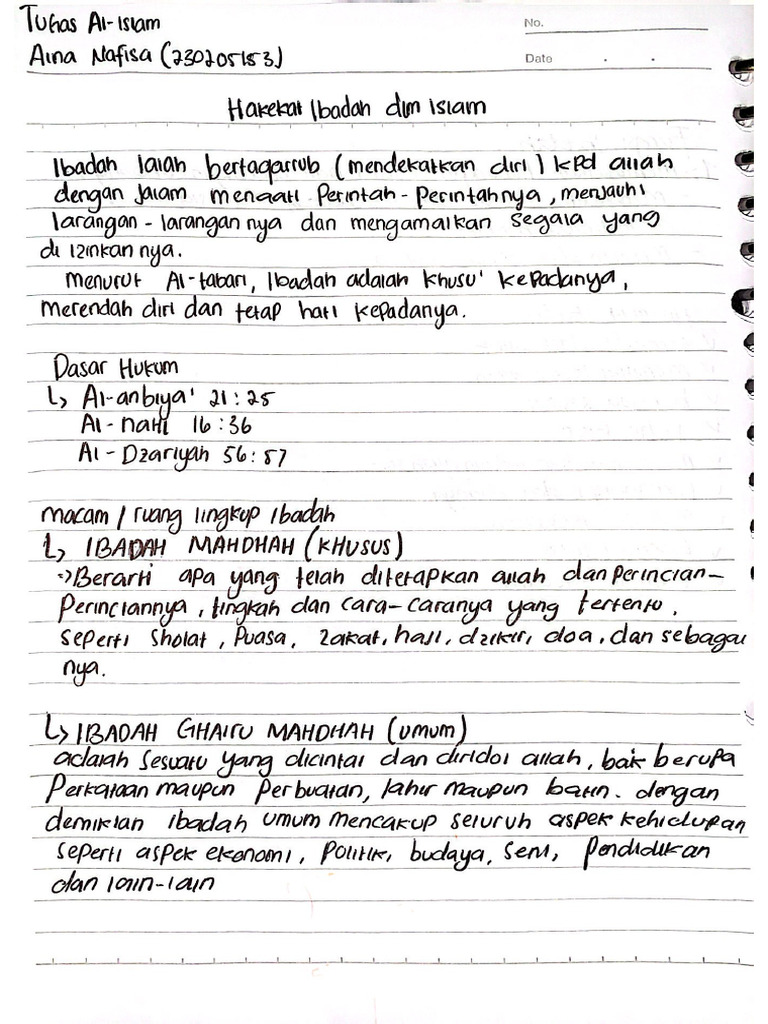 Tugas Al-Islam
No.
Aina Nafisa (230205153)
Date
Hakekat Ibadah dlm Islam
Ibadah ialah bertaqarrub (mendekatkan diri) kpd allah
dengan Jalam menaati Perintah-Perintahnya, menjauhi
larangan-larangan nya dan mengamalkan segala yang
di izinkan nya.
menurut Al-tabari, Ibadah adalah khusu' kepadanya,
merendah diri dan tetap hati kepadanya.
Dasar Hukum
↳ Al-anbiya' 21:25
Al-nahl 16:36
Al-Dzariyah 56:57
macam/ruang lingkup ibadah
↳ IBADAH MAHDHAH (KHUSUS)
Berarti apa yang telah ditetapkan allah dan perincian-
Perinciannya, tingkah dan cara-caranya yang tertentu,
seperti sholat, puasa, zakat, haji, dzikir, doa, dan sebagai
nya.
↳ IBADAH GHAIRU MAHDHAH (umum)
adalah sesuatu yang dicintai dan diridoi allah, baik berupa
Perkataan maupun Perbuatan, lahir maupun batin. dengan
demikian ibadah umum mencakup seluruh aspek kehidupan
seperti aspek ekonomi, Politik, budaya, seni, Pendidikan
dan lain-lain